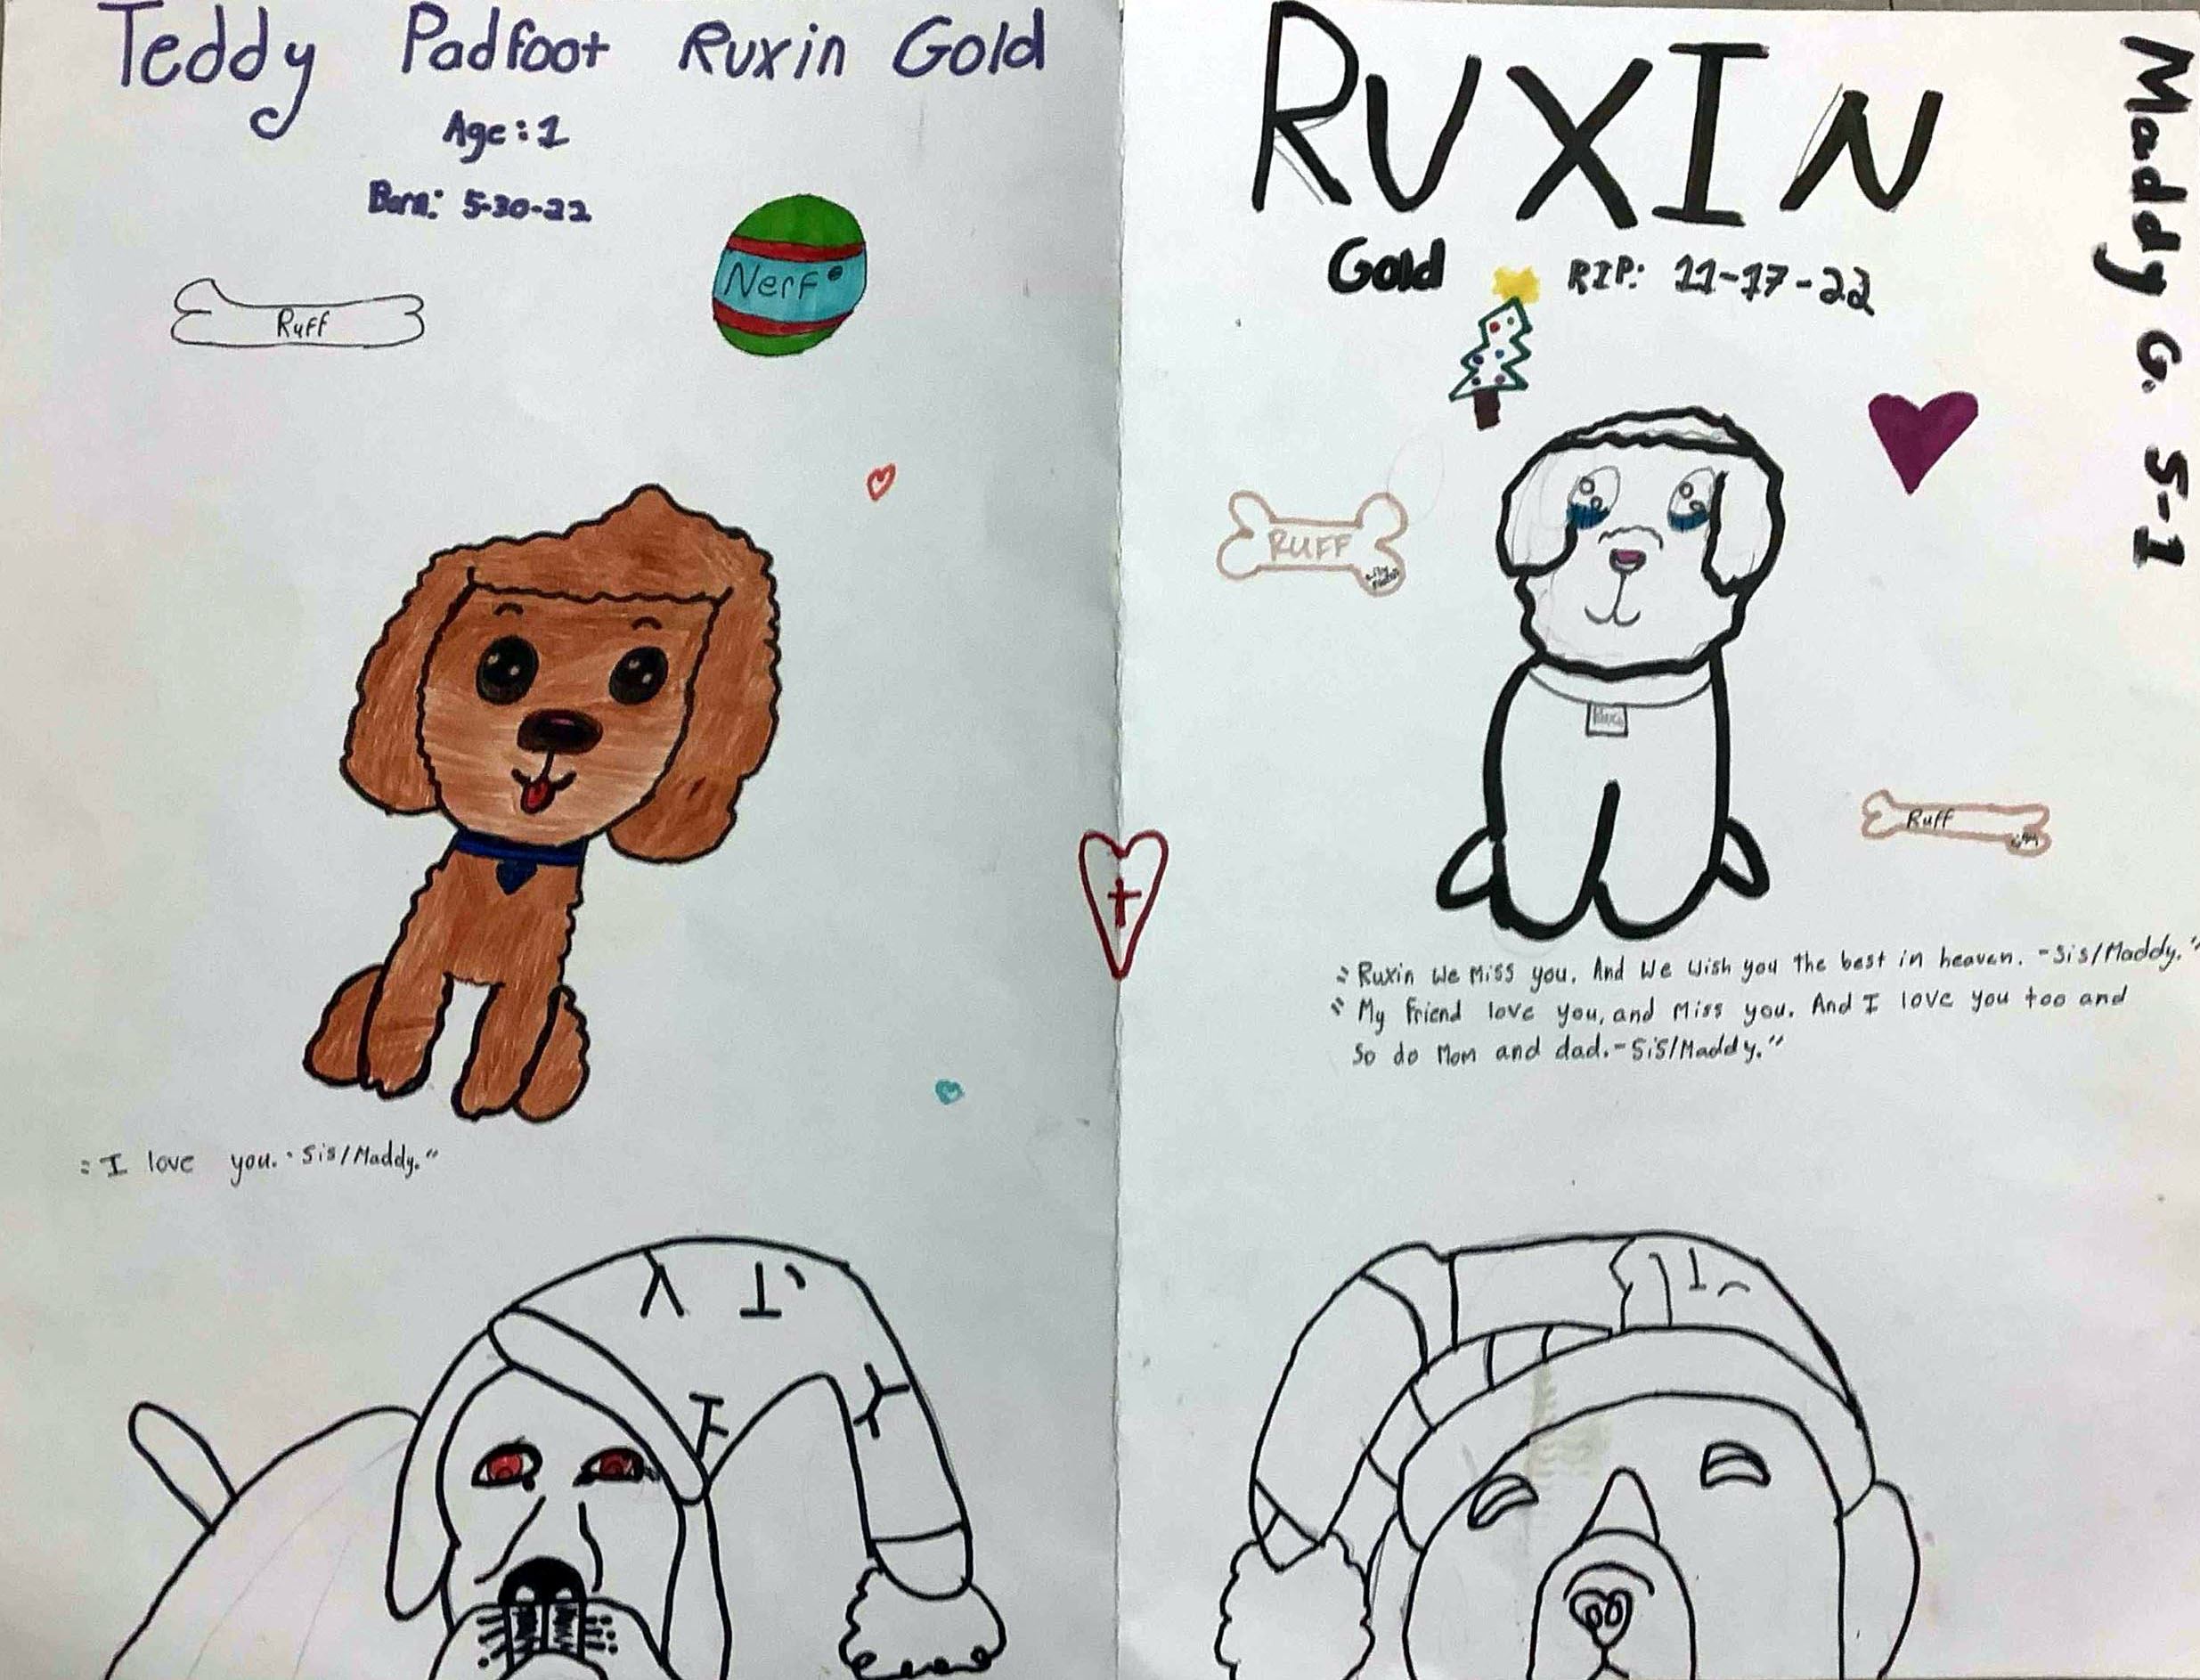 Teddy Padfoot Ruxin Gold
Age: 1
Born: 5-30-22
Nerf
Ruff
"I love you. - Sis/Maddy."
RUXIN
Gold
RIP: 11-17-22
RUFF
Ruff
"Ruxin We Miss you. And We Wish you the best in heaven. -Sis/Maddy."
"My Friend love you, and Miss you. And I love you too and
So do Mom and dad.-Sis/Maddy."
Maddy G. 5-1